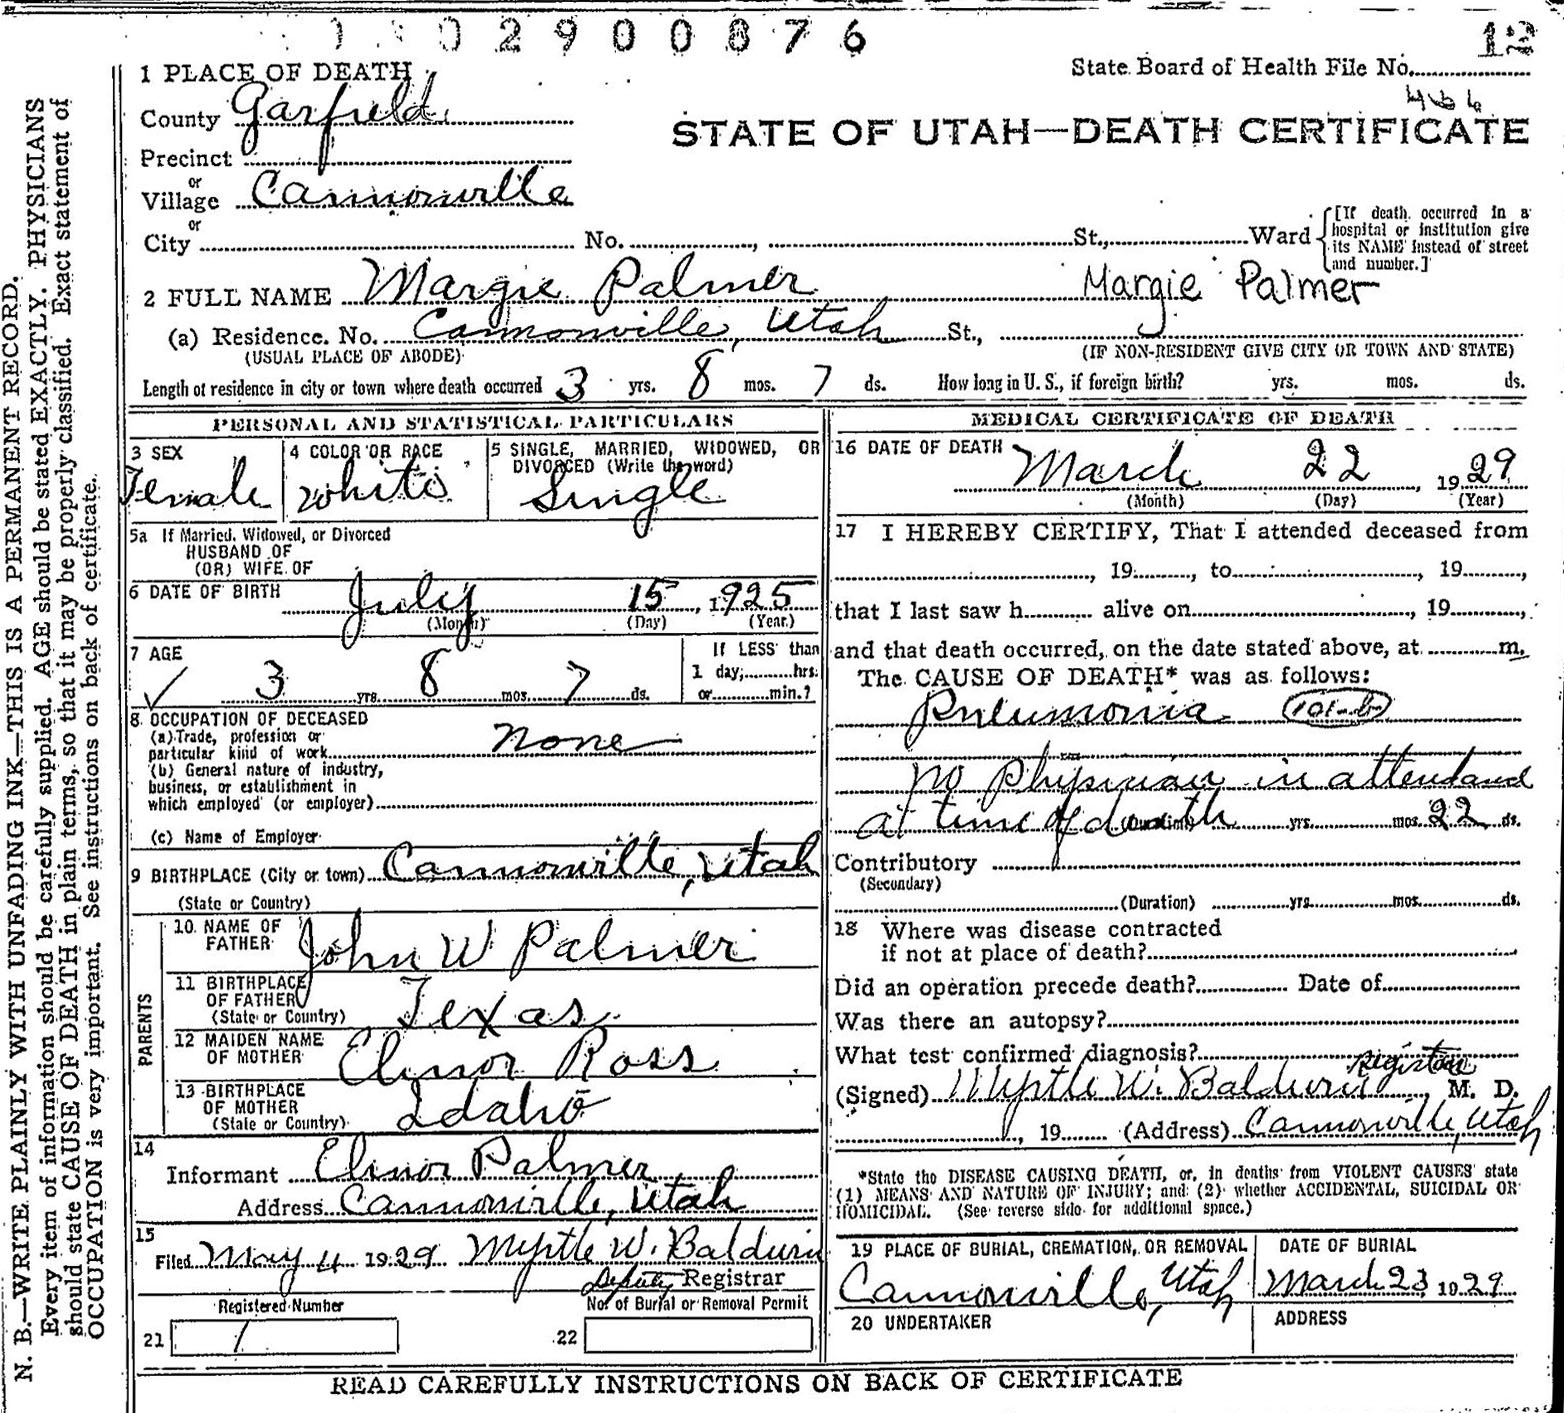 1 3 0 2 9 0 0 8 7 6
12
1 PLACE OF DEATH
State Board of Health File No.
466
County Garfield
STATE OF UTAH—DEATH CERTIFICATE
Precinct
or
Village Cannonville
or
City No. , St., Ward
[If death occurred in a hospital or institution give its NAME instead of street and number.]
2 FULL NAME Margie Palmer Margie Palmer
(a) Residence. No. Cannonville, Utah St.,
(USUAL PLACE OF ABODE) (IF NON-RESIDENT GIVE CITY OR TOWN AND STATE)
Length of residence in city or town where death occurred 3 yrs. 8 mos. 7 ds. How long in U. S., if foreign birth? yrs. mos. ds.
PERSONAL AND STATISTICAL PARTICULARS
3 SEX
Female
4 COLOR OR RACE
White
5 SINGLE, MARRIED, WIDOWED, OR
DIVORCED (Write the word)
Single
5a If Married, Widowed, or Divorced
HUSBAND OF
(OR) WIFE OF
6 DATE OF BIRTH July 15, 1925
(Month) (Day) (Year.)
7 AGE
3 yrs. 8 mos. 7 ds.
If LESS than
1 day, hrs.
or min.?
8 OCCUPATION OF DECEASED
(a) Trade, profession or
particular kind of work none
(b) General nature of industry,
business, or establishment in
which employed (or employer)
(c) Name of Employer
9 BIRTHPLACE (City or town) Cannonville, Utah
(State or Country)
PARENTS
10 NAME OF
FATHER John W Palmer
11 BIRTHPLACE
OF FATHER
(State or Country) Texas
12 MAIDEN NAME
OF MOTHER Elinor Ross
13 BIRTHPLACE
OF MOTHER
(State or Country) Idaho
14
Informant Elinor Palmer
Address Cannonville, Utah
15
Filed May 4 1929 Myrtle W. Baldwin
Deputy Registrar
Registered Number
No. of Burial or Removal Permit
21 1
22
MEDICAL CERTIFICATE OF DEATH
16 DATE OF DEATH March 22, 1929
(Month) (Day) (Year)
17 I HEREBY CERTIFY, That I attended deceased from
, 19 , to , 19 ,
that I last saw h alive on , 19 ,
and that death occurred, on the date stated above, at m.
The CAUSE OF DEATH* was as follows:
Pneumonia 101-b
no physician in attendance
at time of death yrs. mos. 22 ds.
Contributory
(Secondary)
(Duration) yrs. mos. ds.
18 Where was disease contracted
if not at place of death?
Did an operation precede death? Date of
Was there an autopsy?
What test confirmed diagnosis?
Registrar
(Signed) Myrtle W. Baldwin, M. D.
, 19 (Address) Cannonville, Utah
*State the DISEASE CAUSING DEATH, or, in deaths from VIOLENT CAUSES state
(1) MEANS AND NATURE OF INJURY; and (2) whether ACCIDENTAL, SUICIDAL OR
HOMICIDAL. (See reverse side for additional space.)
19 PLACE OF BURIAL, CREMATION, OR REMOVAL
Cannonville, Utah
DATE OF BURIAL
March 23, 1929
20 UNDERTAKER
ADDRESS
READ CAREFULLY INSTRUCTIONS ON BACK OF CERTIFICATE
N. B.—WRITE PLAINLY WITH UNFADING INK—THIS IS A PERMANENT RECORD.
Every item of information should be carefully supplied. AGE should be stated EXACTLY. PHYSICIANS
should state CAUSE OF DEATH in plain terms, so that it may be properly classified. Exact statement of
OCCUPATION is very important. See instructions on back of certificate.